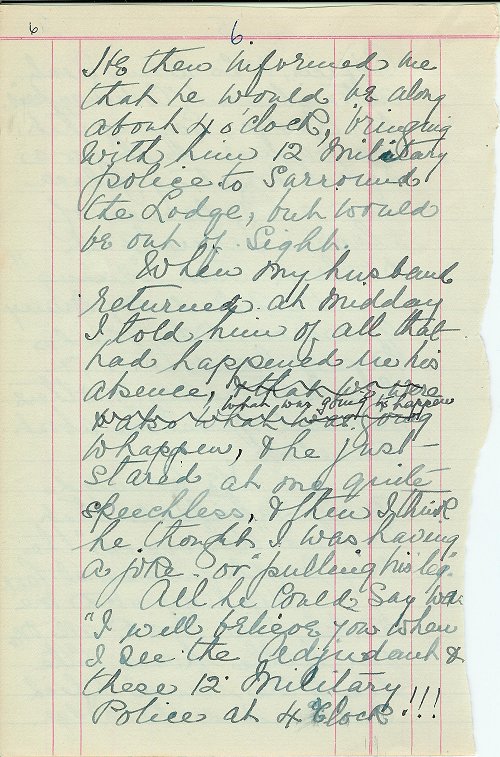 6
6.
He then informed me
that he would be along
about 4 o'clock, bringing
with him 12 Military
police to Surround
the Lodge, but would
be out of Sight.
When my husband
returned at midday
I told him of all that
had happened in his
absence, & that we were
what was going to happen
& also what was going
to happen, & he just
stared at me quite
speechless, & then I think
he thought I was having
a joke or "pulling his leg".
All he could say was
"I will believe you when
I see the Adjudant &
these 12 Military
Police at 4 o'clock!!!